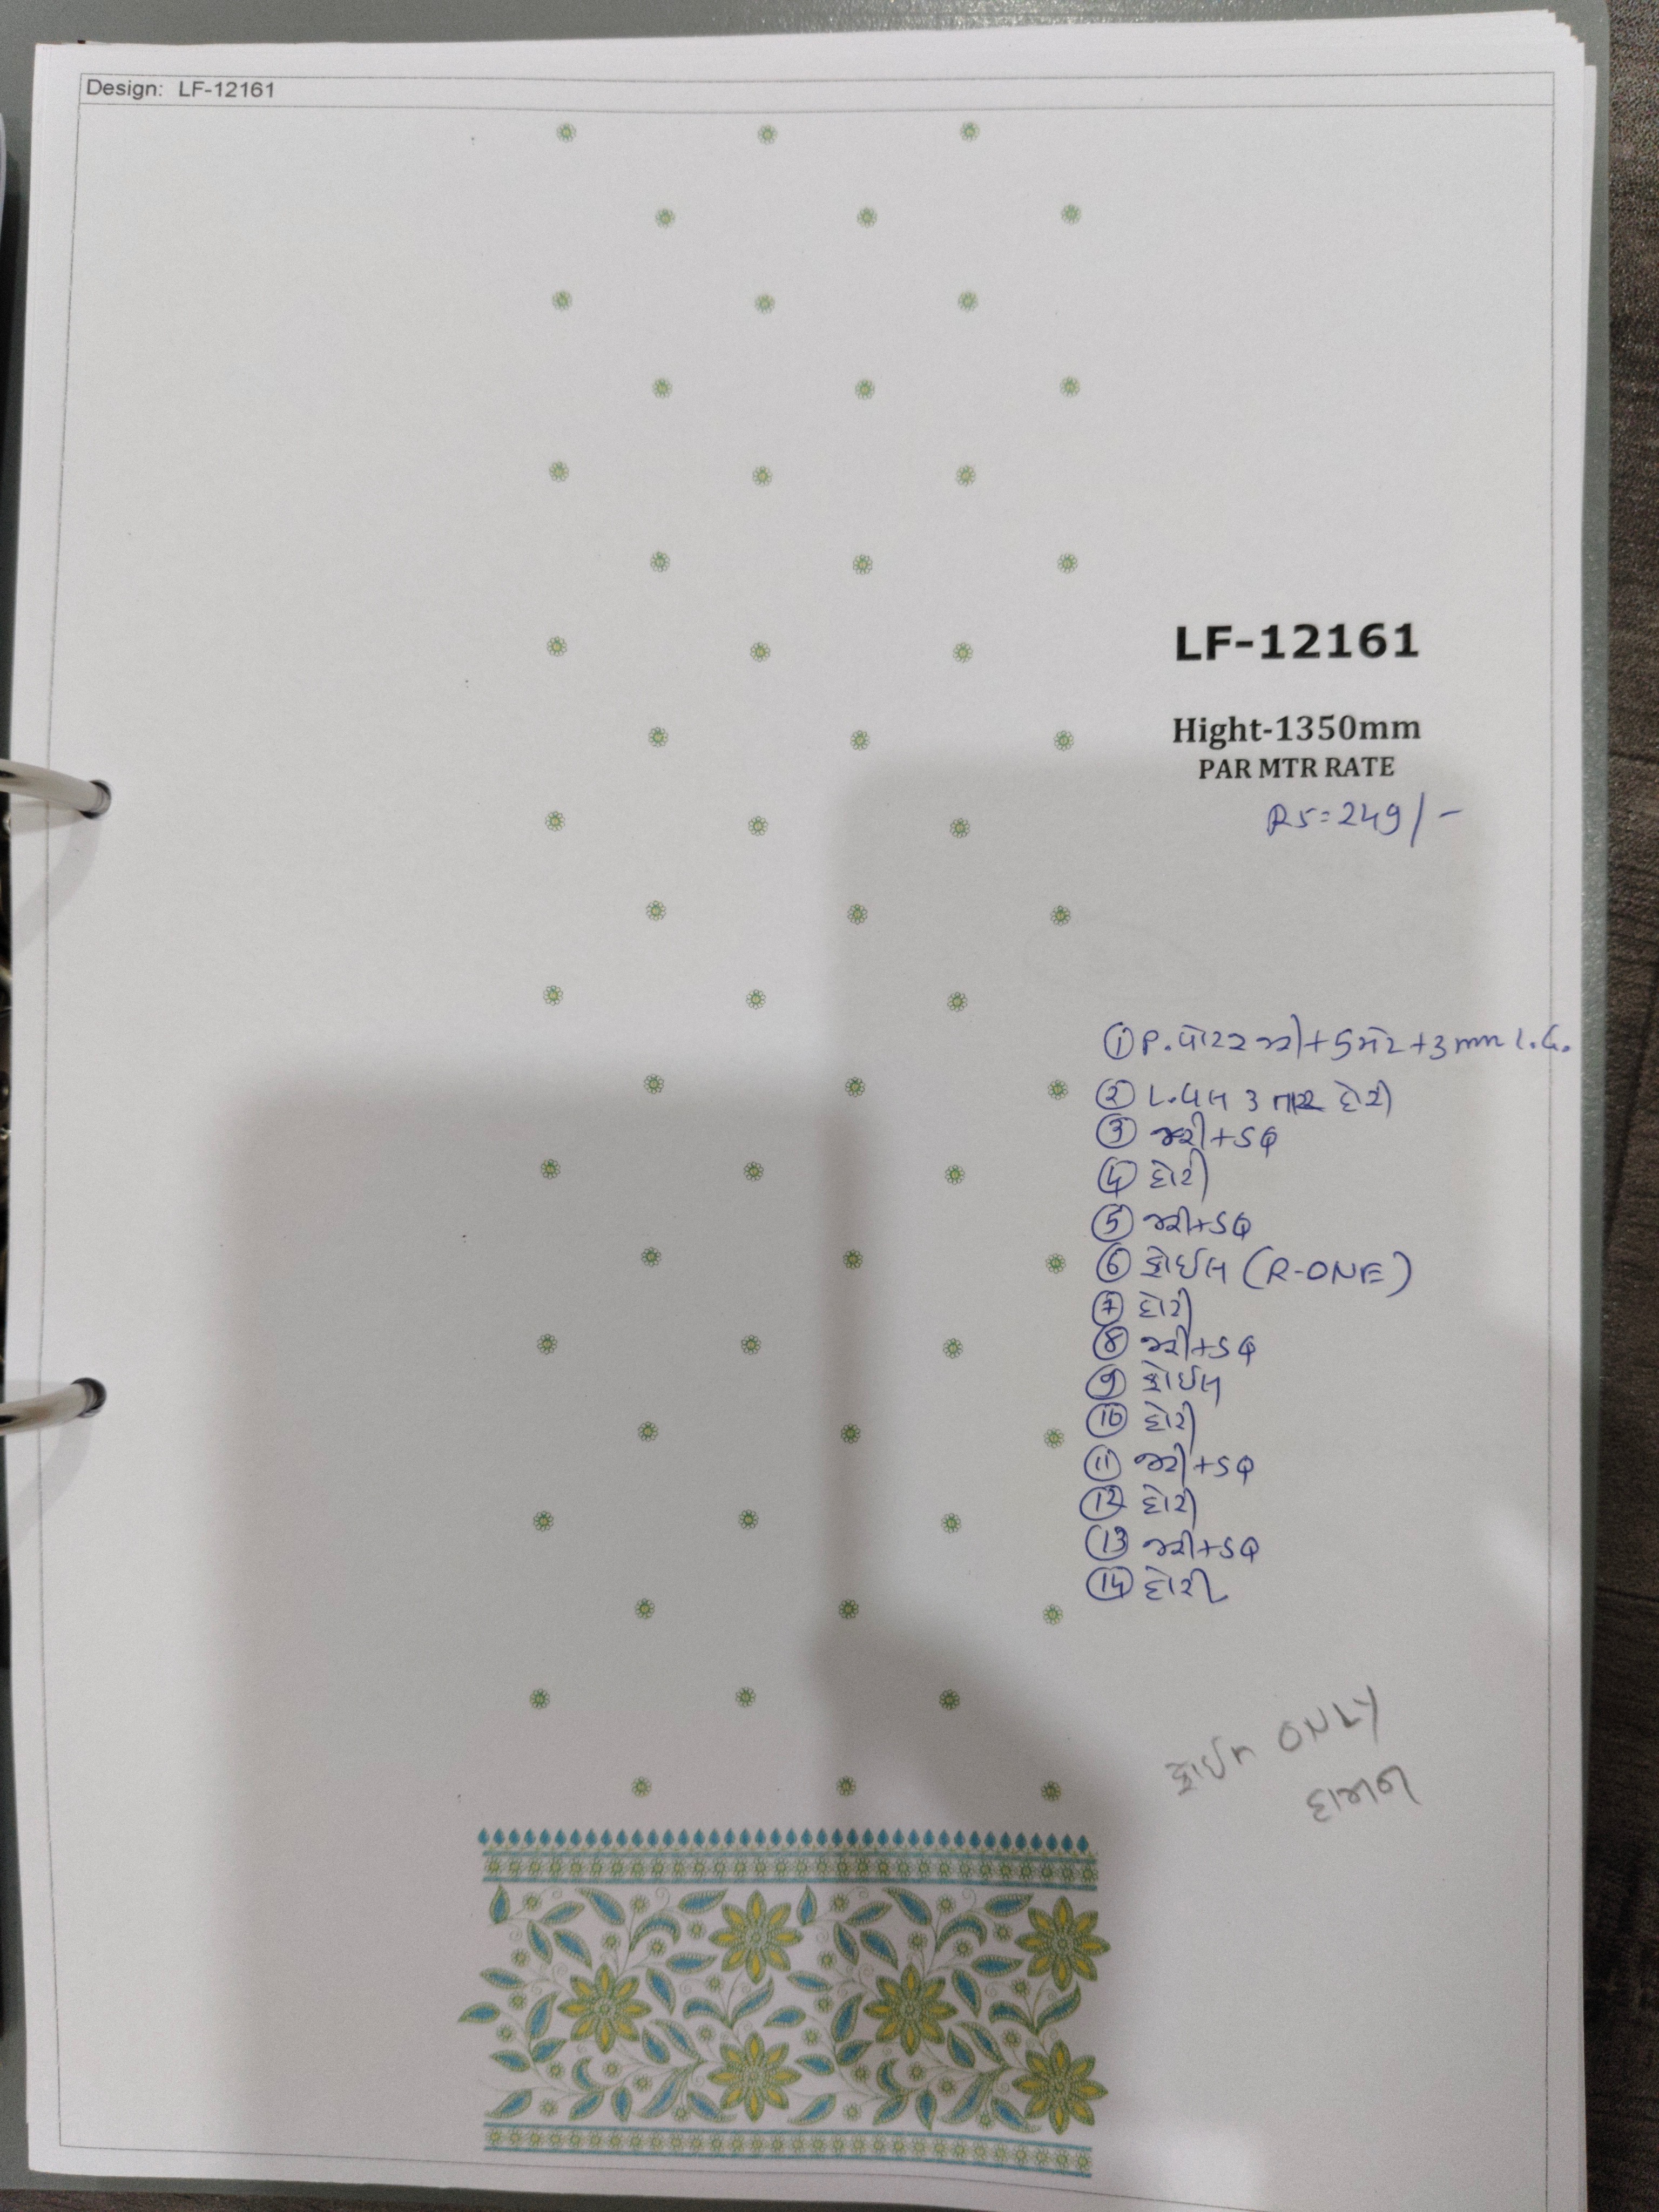 Design: LF-12161
LF-12161
Hight-1350mm
PAR MTR RATE
RS=249/-
① P. +5મેટ+3mm
② 3 તાર દોરી
③ જરી+SQ
④ દોરી
⑤ જરી+SQ
⑥ ફોઈલ (R-ONE)
⑦ દોરી
⑧ જરી+SQ
⑨ ફોઈલ
⑩ દોરી
⑪ જરી+SQ
⑫ દોરી
⑬ જરી+SQ
⑭ દોરી
ONLY